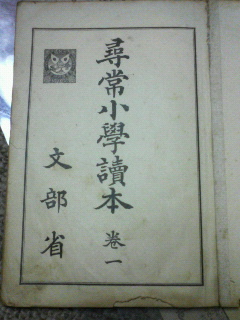 尋常小學讀本 卷一
文部省